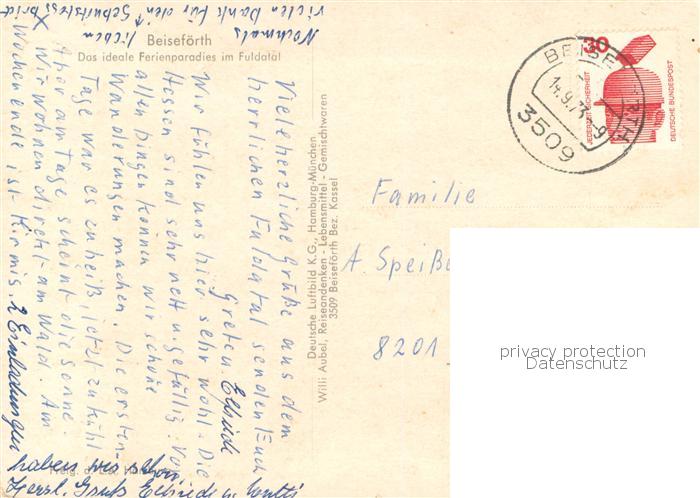 Beiseförth
Das ideale Ferienparadies im Fuldatal
Viele herzliche Grüße aus dem
herrlichen Fuldatal senden Euch
Greten. Elfriede
Wir fühlen uns hier sehr wohl. Die
Hessen sind sehr nett u. gefällig. Vor
allen Dingen können wir schöne
Wanderungen machen. Die ersten
Tage war es zu heiß, jetzt zu kühl
Aber am Tage scheint die Sonne.
Wir wohnen direkt am Wald. Am
Wochenende ist Kirmis. 2 Einladungen
haben wir schon.
Herzl. Gruß Elfriede u.
Nochmals lieben
vielen Dank für den Geburtstagsbrief
Deutsche Luftbild K.G., Hamburg-München
Willi Aubel, Reiseandenken - Lebensmittel - Gemischtwaren
3509 Beiseförth Bez. Kassel
BEISEFÖRTH
14.9.7
3509
30
JEDERZEIT SICHERHEIT
DEUTSCHE BUNDESPOST
Familie
A. Speiße
8201
privacy protection
Datenschutz